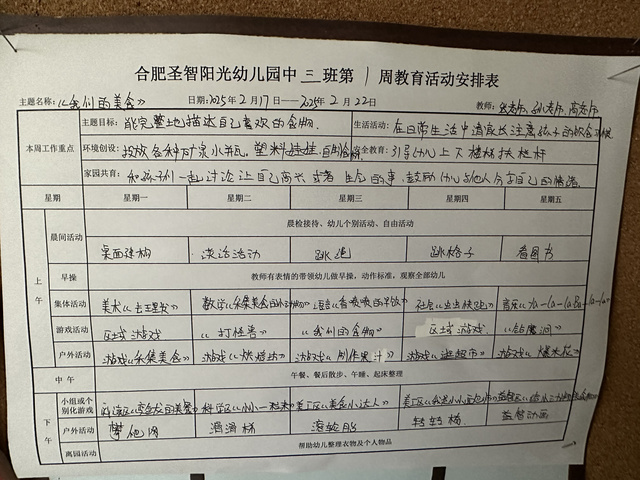 合肥圣智阳光幼儿园中三班第1周教育活动安排表
主题名称：《我们的美食》 日期：2025年2月17日——2025年2月22日 教师：
本周工作重点
主题目标：能完整地描述自己喜欢的食物.
生活活动：在日常生活中请家长注意孩子的饮食习惯
环境创设：投放各种矿泉小瓶、塑料
安全教育：引导幼儿上下楼梯扶栏杆
家园共育：和孩子们一起讨论让自己高兴或者生气的事，鼓励幼儿与他人分享自己的情绪
星期 星期一 星期二 星期三 星期四 星期五
上午
晨间活动 晨检接待、幼儿个别活动、自由活动
桌面建构 谈话活动 跳绳 跳格子 看图书
早操 教师有表情的带领幼儿做早操，动作标准，观察全部幼儿
集体活动 美术《去理发》 数学 语言《香喷喷的早饭》 社会 音乐
游戏活动 区域游戏 《打怪兽》 《我们的食物》 区域游戏 《钻魔洞》
户外活动 游戏《采集美食》 游戏 游戏《制作果汁》 游戏《逛超市》 游戏《爆米花》
中午 午餐、餐后散步、午睡、起床整理
下午
小组或个别化游戏 科学区《小小一粒米》 美工区《美食小达人》
户外活动 攀爬网 滑滑梯 滚轮胎 转转椅 益智动画
离园活动 帮助幼儿整理衣物及个人物品